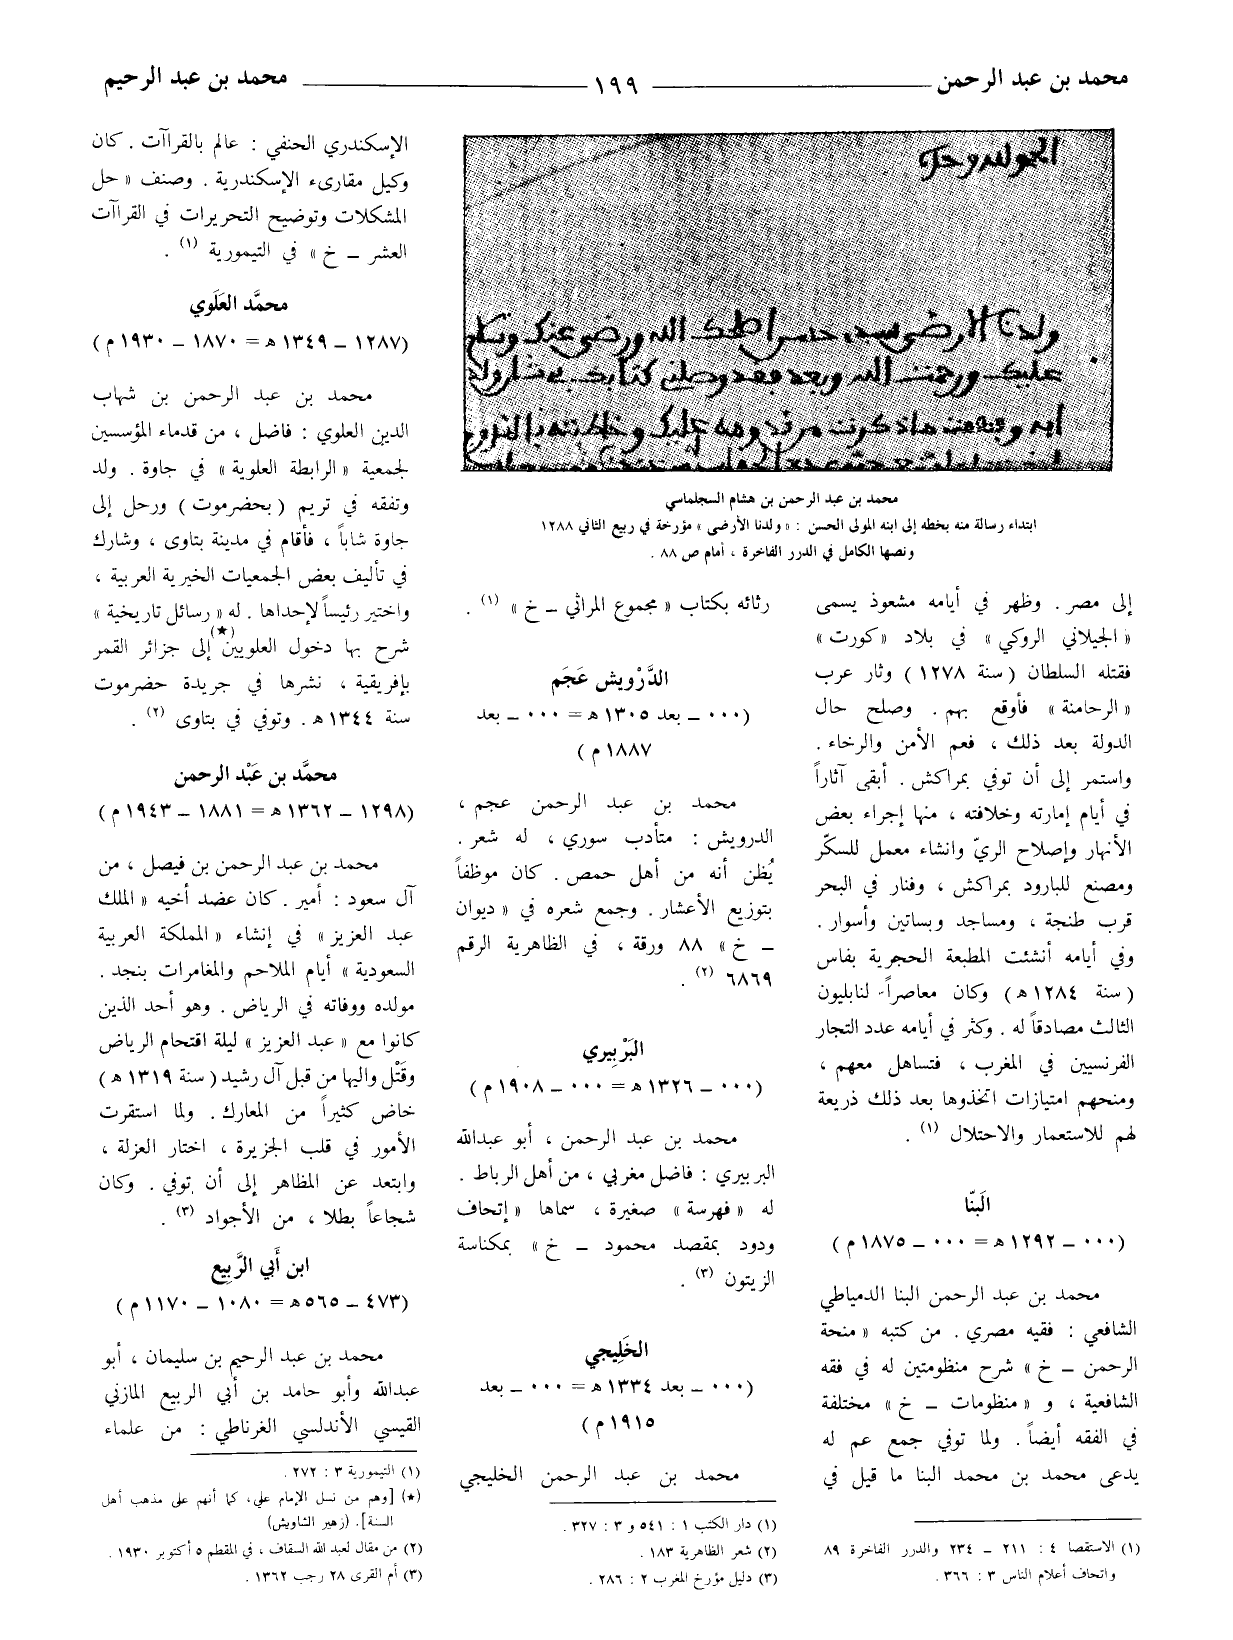 محمد بن عبد الرحمن ١٩٩ محمد بن عبد الرحيم
ولدنا الارضى سيدي حسن اصلحك الله ورضي عنك وسلام
عليك ورحمت الله وبعد فقد وصلنا كتابك
محمد بن عبد الرحمن بن هشام السجلماسي
ابتداء رسالة منه بخطه إلى ابنه المولى الحسن : « ولدنا الأرضى » مؤرخة في ربيع الثاني ١٢٨٨
ونصها الكامل في الدرر الفاخرة ، أمام ص ٨٨ .
إلى مصر . وظهر في أيامه مشعوذ يسمى
« الجيلاني الروكي » في بلاد « كورت »
فقتله السلطان ( سنة ١٢٧٨ ) وثار عرب
« الرحامنة » فأوقع بهم . وصلح حال
الدولة بعد ذلك ، فعم الأمن والرخاء .
واستمر إلى أن توفي بمراكش . أبقى آثاراً
في أيام إمارته وخلافته ، منها إجراء بعض
الأنهار وإصلاح الريّ وانشاء معمل للسكّر
ومصنع للبارود بمراكش ، وفنار في البحر
قرب طنجة ، ومساجد وبساتين وأسوار .
وفي أيامه أنشئت المطبعة الحجرية بفاس
( سنة ١٢٨٤ هـ ) وكان معاصراً لنابليون
الثالث مصادقاً له . وكثر في أيامه عدد التجار
الفرنسيين في المغرب ، فتساهل معهم ،
ومنحهم امتيازات اتخذوها بعد ذلك ذريعة
لهم للاستعمار والاحتلال (١) .
البَنّا
(٠٠٠ – ١٢٩٢ هـ = ٠٠٠ – ١٨٧٥ م )
محمد بن عبد الرحمن البنا الدمياطي
الشافعي : فقيه مصري . من كتبه « منحة
الرحمن – خ » شرح منظومتين له في فقه
الشافعية ، و « منظومات – خ » مختلفة
في الفقه أيضاً . ولما توفي جمع عم له
يدعى محمد بن محمد البنا ما قيل في
(١) الاستقصا ٤ : ٢١١ – ٢٣٤ والدرر الفاخرة ٨٩
واتحاف أعلام الناس ٣ : ٣٦٦ .
رثائه بكتاب « مجموع المراثي – خ » (١) .
الدَّرْويش عَجَم
(٠٠٠ – بعد ١٣٠٥ هـ = ٠٠٠ – بعد
١٨٨٧ م )
محمد بن عبد الرحمن عجم ،
الدرويش : متأدب سوري ، له شعر .
يُظن أنه من أهل حمص . كان موظفاً
بتوزيع الأعشار . وجمع شعره في « ديوان
– خ » ٨٨ ورقة ، في الظاهرية الرقم
٦٨٦٩ (٢) .
البَرْبيري
(٠٠٠ – ١٣٢٦ هـ = ٠٠٠ – ١٩٠٨ م )
محمد بن عبد الرحمن ، أبو عبدالله
البربيري : فاضل مغربي ، من أهل الرباط .
له « فهرسة » صغيرة ، سماها « إتحاف
ودود بمقصد محمود – خ » بمكناسة
الزيتون (٣) .
الخَلِيجي
(٠٠٠ – بعد ١٣٣٤ هـ = ٠٠٠ – بعد
١٩١٥ م )
محمد بن عبد الرحمن الخليجي
(١) دار الكتب ١ : ٥٤١ و ٣ : ٣٢٧ .
(٢) شعر الظاهرية ١٨٣ .
(٣) دليل مؤرخ المغرب ٢ : ٢٨٦ .
الإسكندري الحنفي : عالم بالقراآت . كان
وكيل مقارىء الإسكندرية . وصنف « حل
المشكلات وتوضيح التحريرات في القراآت
العشر – خ » في التيمورية (١) .
محمَّد العَلَوي
(١٢٨٧ – ١٣٤٩ هـ = ١٨٧٠ – ١٩٣٠ م )
محمد بن عبد الرحمن بن شهاب
الدين العلوي : فاضل ، من قدماء المؤسسين
لجمعية « الرابطة العلوية » في جاوة . ولد
وتفقه في تريم ( بحضرموت ) ورحل إلى
جاوة شاباً ، فأقام في مدينة بتاوى ، وشارك
في تأليف بعض الجمعيات الخيرية العربية ،
واختير رئيساً لإحداها . له « رسائل تاريخية »
شرح بها دخول العلويين (★) إلى جزائر القمر
بإفريقية ، نشرها في جريدة حضرموت
سنة ١٣٤٤ هـ . وتوفي في بتاوى (٢) .
محمَّد بن عَبْد الرحمن
(١٢٩٨ – ١٣٦٢ هـ = ١٨٨١ – ١٩٤٣ م )
محمد بن عبد الرحمن بن فيصل ، من
آل سعود : أمير . كان عضد أخيه « الملك
عبد العزيز » في إنشاء « المملكة العربية
السعودية » أيام الملاحم والمغامرات بنجد .
مولده ووفاته في الرياض . وهو أحد الذين
كانوا مع « عبد العزيز » ليلة اقتحام الرياض
وقَتْل واليها من قبل آل رشيد ( سنة ١٣١٩ هـ )
خاض كثيراً من المعارك . ولما استقرت
الأمور في قلب الجزيرة ، اختار العزلة ،
وابتعد عن المظاهر إلى أن توفي . وكان
شجاعاً بطلا ، من الأجواد (٣) .
ابن أَبي الرَّبِيع
(٤٧٣ – ٥٦٥ هـ = ١٠٨٠ – ١١٧٠ م )
محمد بن عبد الرحيم بن سليمان ، أبو
عبدالله وأبو حامد بن أبي الربيع المازني
القيسي الأندلسي الغرناطي : من علماء
(١) التيمورية ٣ : ٢٧٢ .
(★) [وهم من نسل الإمام علي، كما أنهم على مذهب أهل
السنة]. (زهير الشاويش)
(٢) من مقال لعبد الله السقاف ، في المقطم ٥ أكتوبر ١٩٣٠ .
(٣) أم القرى ٢٨ رجب ١٣٦٢ .